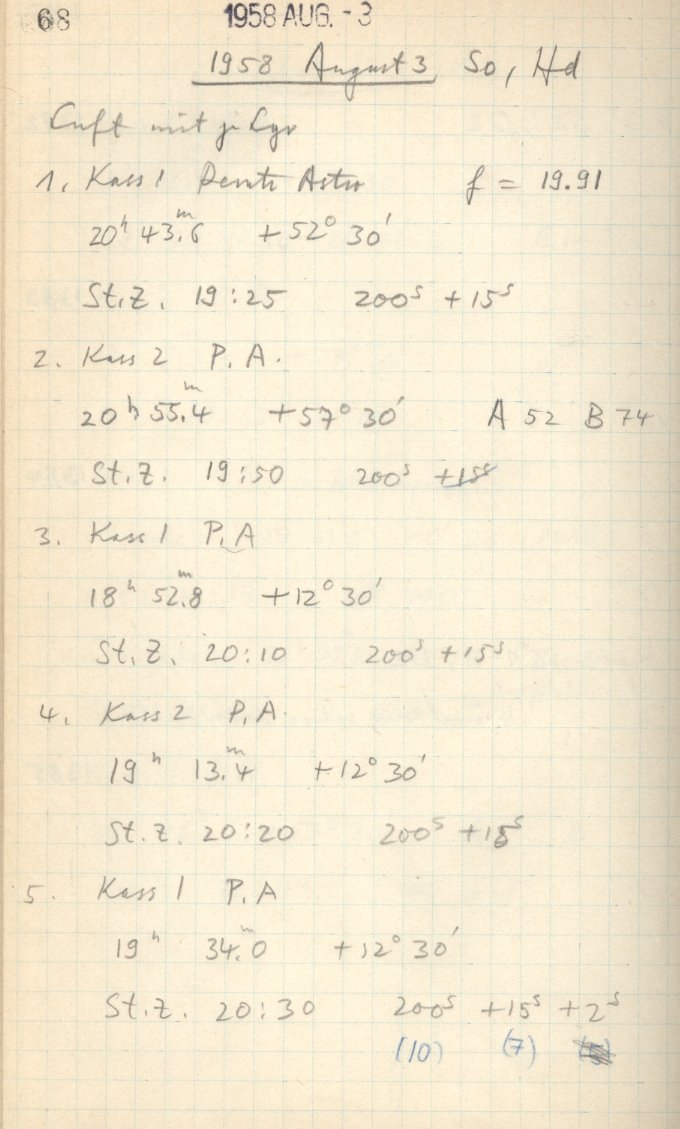 68 1958 AUG. - 3
1958 August 3 So, Hd
Luft mit γ Lyr
1. Kass 1 Perutz Astro f = 19.91
20ʰ 43.6ᵐ +52° 30'
St.Z. 19:25 200ˢ +15ˢ
2. Kass 2 P. A.
20ʰ 55.4ᵐ +57° 30' A 52 B 74
St.Z. 19:50 200ˢ +15ˢ
3. Kass 1 P. A
18ʰ 52.8ᵐ +12° 30'
St.Z. 20:10 200ˢ +15ˢ
4. Kass 2 P. A.
19ʰ 13.4ᵐ +12° 30'
St.Z. 20:20 200ˢ +15ˢ
5. Kass 1 P. A
19ʰ 34.0ᵐ +12° 30'
St.Z. 20:30 200ˢ +15ˢ +2ˢ
(10) (7)